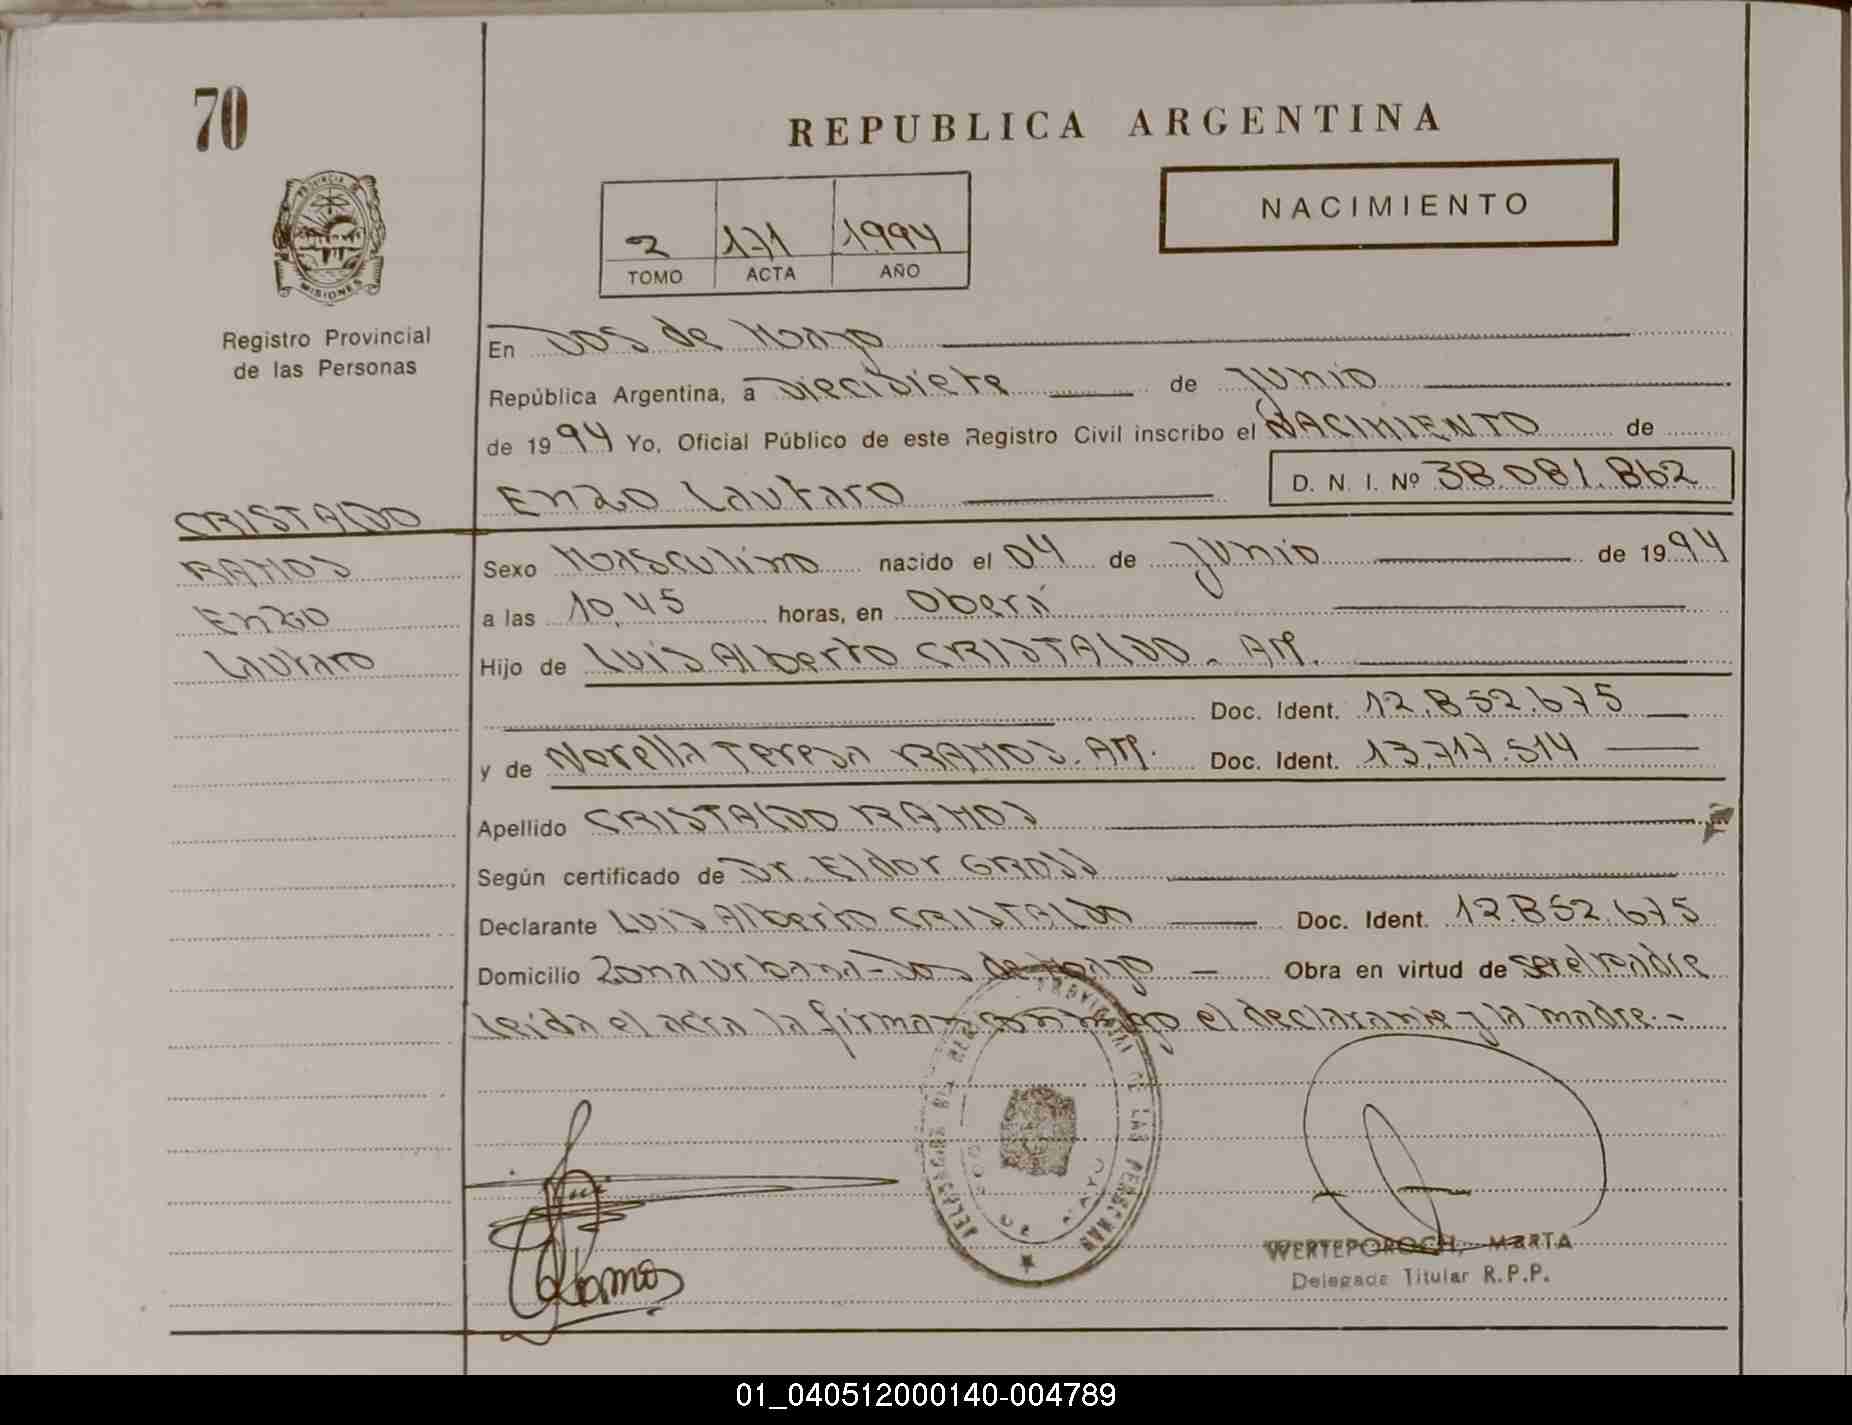 70
REPUBLICA ARGENTINA
NACIMIENTO
2 171 1994
TOMO ACTA AÑO
PROVINCIA DE
MISIONES
Registro Provincial
de las Personas
En Dos de Mayo
República Argentina, a Diecisiete de Junio
de 1994 Yo, Oficial Público de este Registro Civil inscribo el NACIMIENTO de
Enzo Lautaro D. N. I. Nº 38.081.862
CRISTALDO
RAMOS
Enzo
Lautaro
Sexo Masculino nacido el 04 de Junio de 1994
a las 10,45 horas, en Oberá
Hijo de Luis Alberto CRISTALDO. Arg.
Doc. Ident. 12.852.675
y de Norella Teresa RAMOS. Arg. Doc. Ident. 13.717.514
Apellido CRISTALDO RAMOS
Según certificado de Dr. Eldor GROSS
Declarante Luis Alberto CRISTALDO Doc. Ident. 12.852.675
Domicilio Zona Urbana - Dos de Mayo - Obra en virtud de ser el padre
Leída el acta la firman conmigo el declarante y la madre.-
DELEGACION DEL REG. PROVINCIAL DE LAS PERSONAS
DOS DE MAYO
Ramos
WERTEPOROCH, MARTA
Delegada Titular R.P.P.
01_040512000140-004789